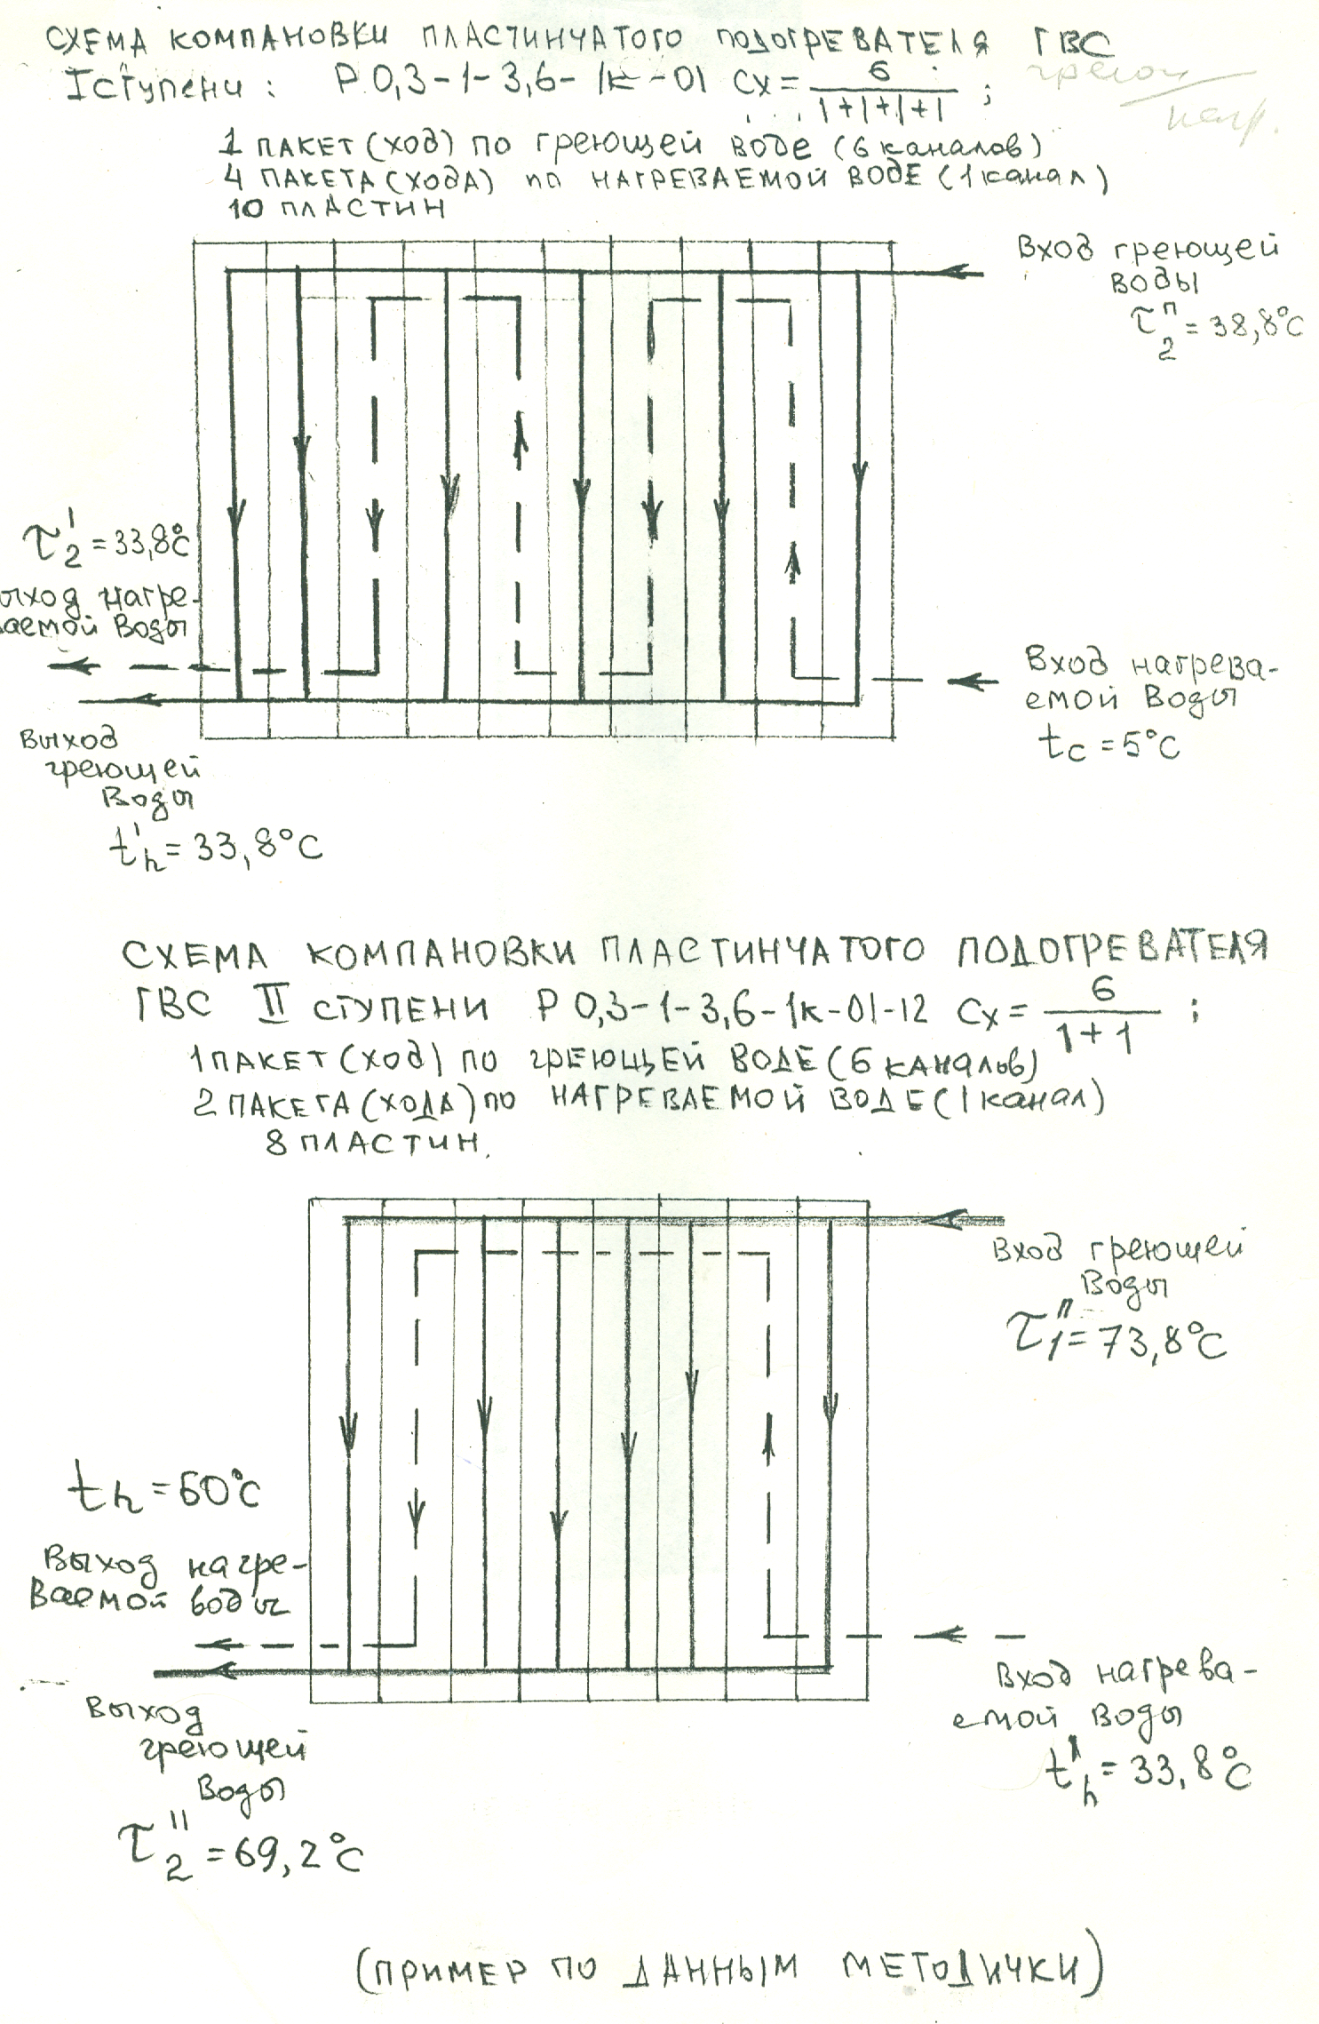 СХЕМА КОМПАНОВКИ ПЛАСТИНЧАТОГО ПОДОГРЕВАТЕЛЯ ГВС
I ступени: Р 0,3-1-3,6-1к-01 Сх = 6/1+1+1+1 ;
греющ
нагр.
1 ПАКЕТ (ХОД) ПО греющей воде (6 каналов)
4 ПАКЕТА (ХОДА) по НАГРЕВАЕМОЙ ВОДЕ (1 канал)
10 ПЛАСТИН
Вход греющей
воды
τ₂ᴨ = 38,8°С
τ₂ˡ = 33,8°С
ыход нагре-
ваемой Воды
Вход нагрева-
емой Воды
tc = 5°С
Выход
греющей
Воды
t'h = 33,8°С
СХЕМА КОМПАНОВКИ ПЛАСТИНЧАТОГО ПОДОГРЕВАТЕЛЯ
ГВС II СТУПЕНИ Р 0,3-1-3,6-1к-01-12 Сх = 6/1+1 ;
1 ПАКЕТ (ХОД) ПО ГРЕЮЩЕЙ ВОДЕ (6 каналов)
2 ПАКЕТА (ХОДА) по НАГРЕВАЕМОЙ ВОДЕ (1 канал)
8 ПЛАСТИН.
Вход греющей
Воды
τ₁ᴨ = 73,8°С
th = 60°С
Выход нагре-
Ваемой воды
Вход нагрева-
емой Воды
t'h = 33,8°С
Выход
греющей
Воды
τ₂ᴵᴵ = 69,2°С
(ПРИМЕР ПО ДАННЫМ МЕТОДИЧКИ)